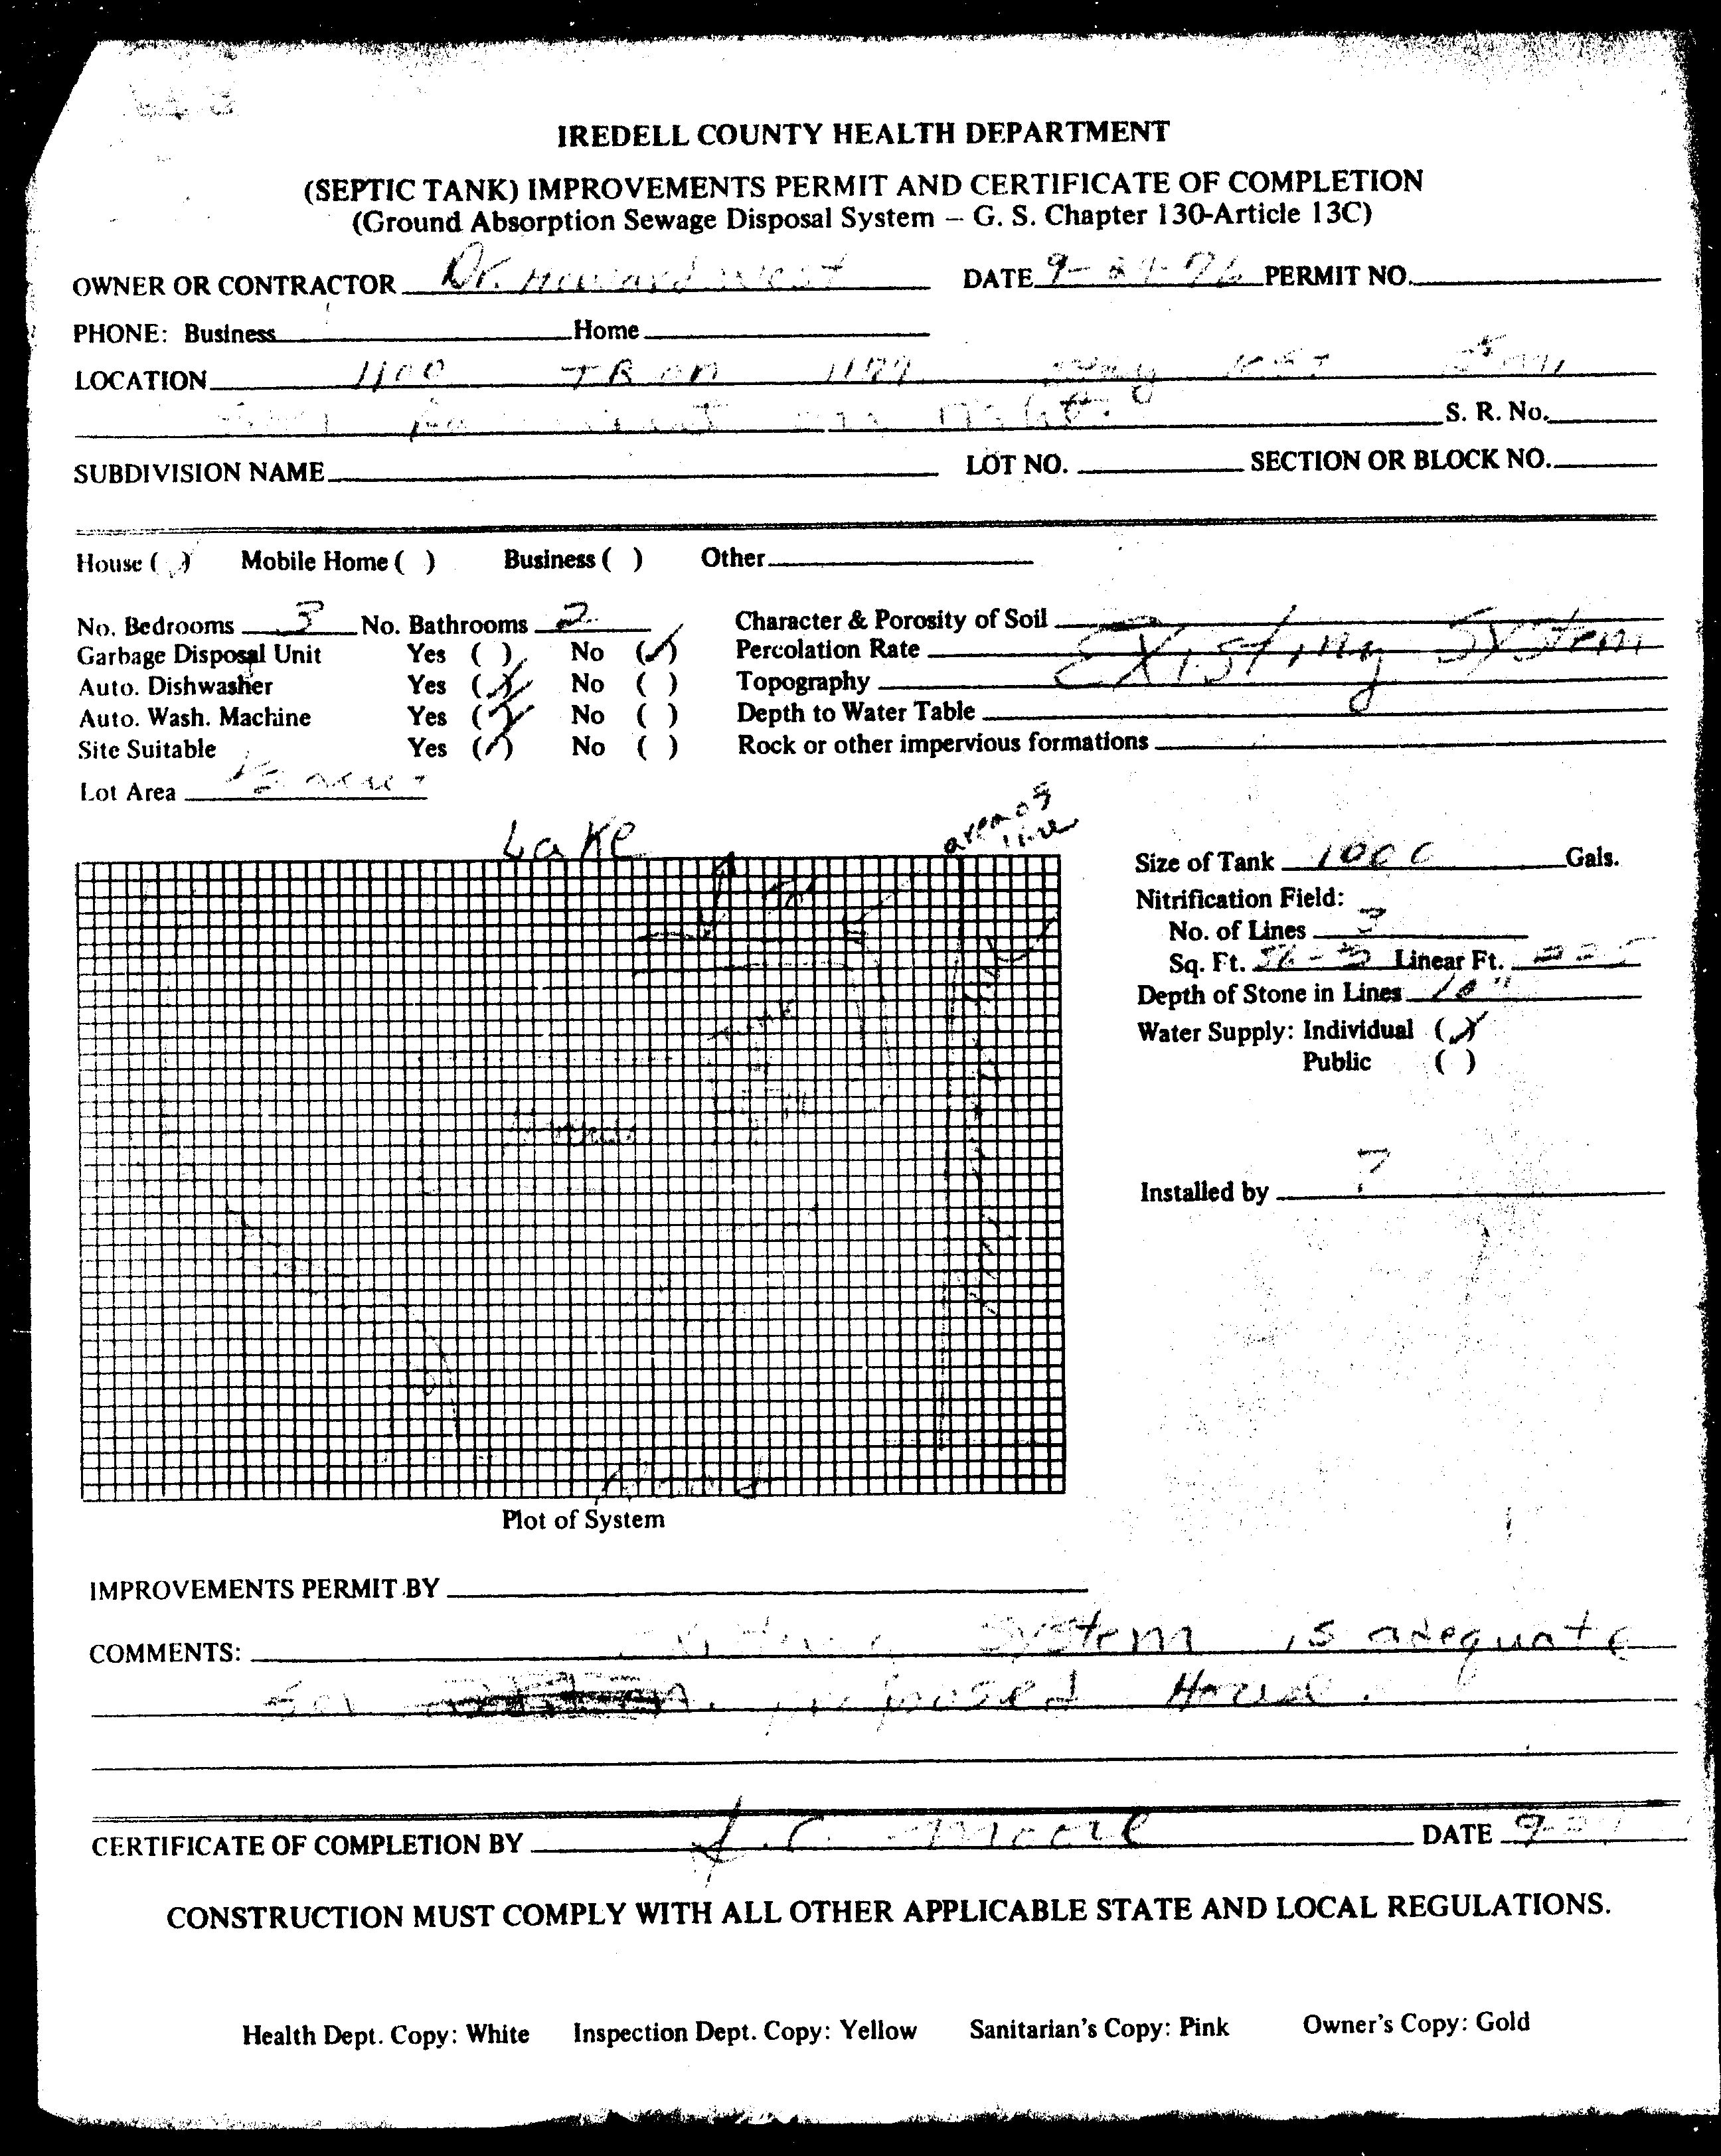 IREDELL COUNTY HEALTH DEPARTMENT
(SEPTIC TANK) IMPROVEMENTS PERMIT AND CERTIFICATE OF COMPLETION
(Ground Absorption Sewage Disposal System – G. S. Chapter 130-Article 13C)
OWNER OR CONTRACTOR Dr. Howard West DATE 9-29-76 PERMIT NO.
PHONE: Business Home
LOCATION 1100 TR on
on right. S. R. No.
SUBDIVISION NAME LOT NO. SECTION OR BLOCK NO.
House ( ) Mobile Home ( ) Business ( ) Other
No. Bedrooms 3 No. Bathrooms 2 Character & Porosity of Soil
Garbage Disposal Unit Yes ( ) No (✓) Percolation Rate Existing System
Auto. Dishwasher Yes (✓) No ( ) Topography
Auto. Wash. Machine Yes (✓) No ( ) Depth to Water Table
Site Suitable Yes (✓) No ( ) Rock or other impervious formations
Lot Area
Lake
line
Size of Tank 1000 Gals.
Nitrification Field:
No. of Lines 3
Sq. Ft. Linear Ft.
Depth of Stone in Lines 10"
Water Supply: Individual (✓)
Public ( )
Installed by ?
Plot of System
IMPROVEMENTS PERMIT BY
COMMENTS: Existing System is adequate
for proposed House.
CERTIFICATE OF COMPLETION BY DATE
CONSTRUCTION MUST COMPLY WITH ALL OTHER APPLICABLE STATE AND LOCAL REGULATIONS.
Health Dept. Copy: White Inspection Dept. Copy: Yellow Sanitarian's Copy: Pink Owner's Copy: Gold